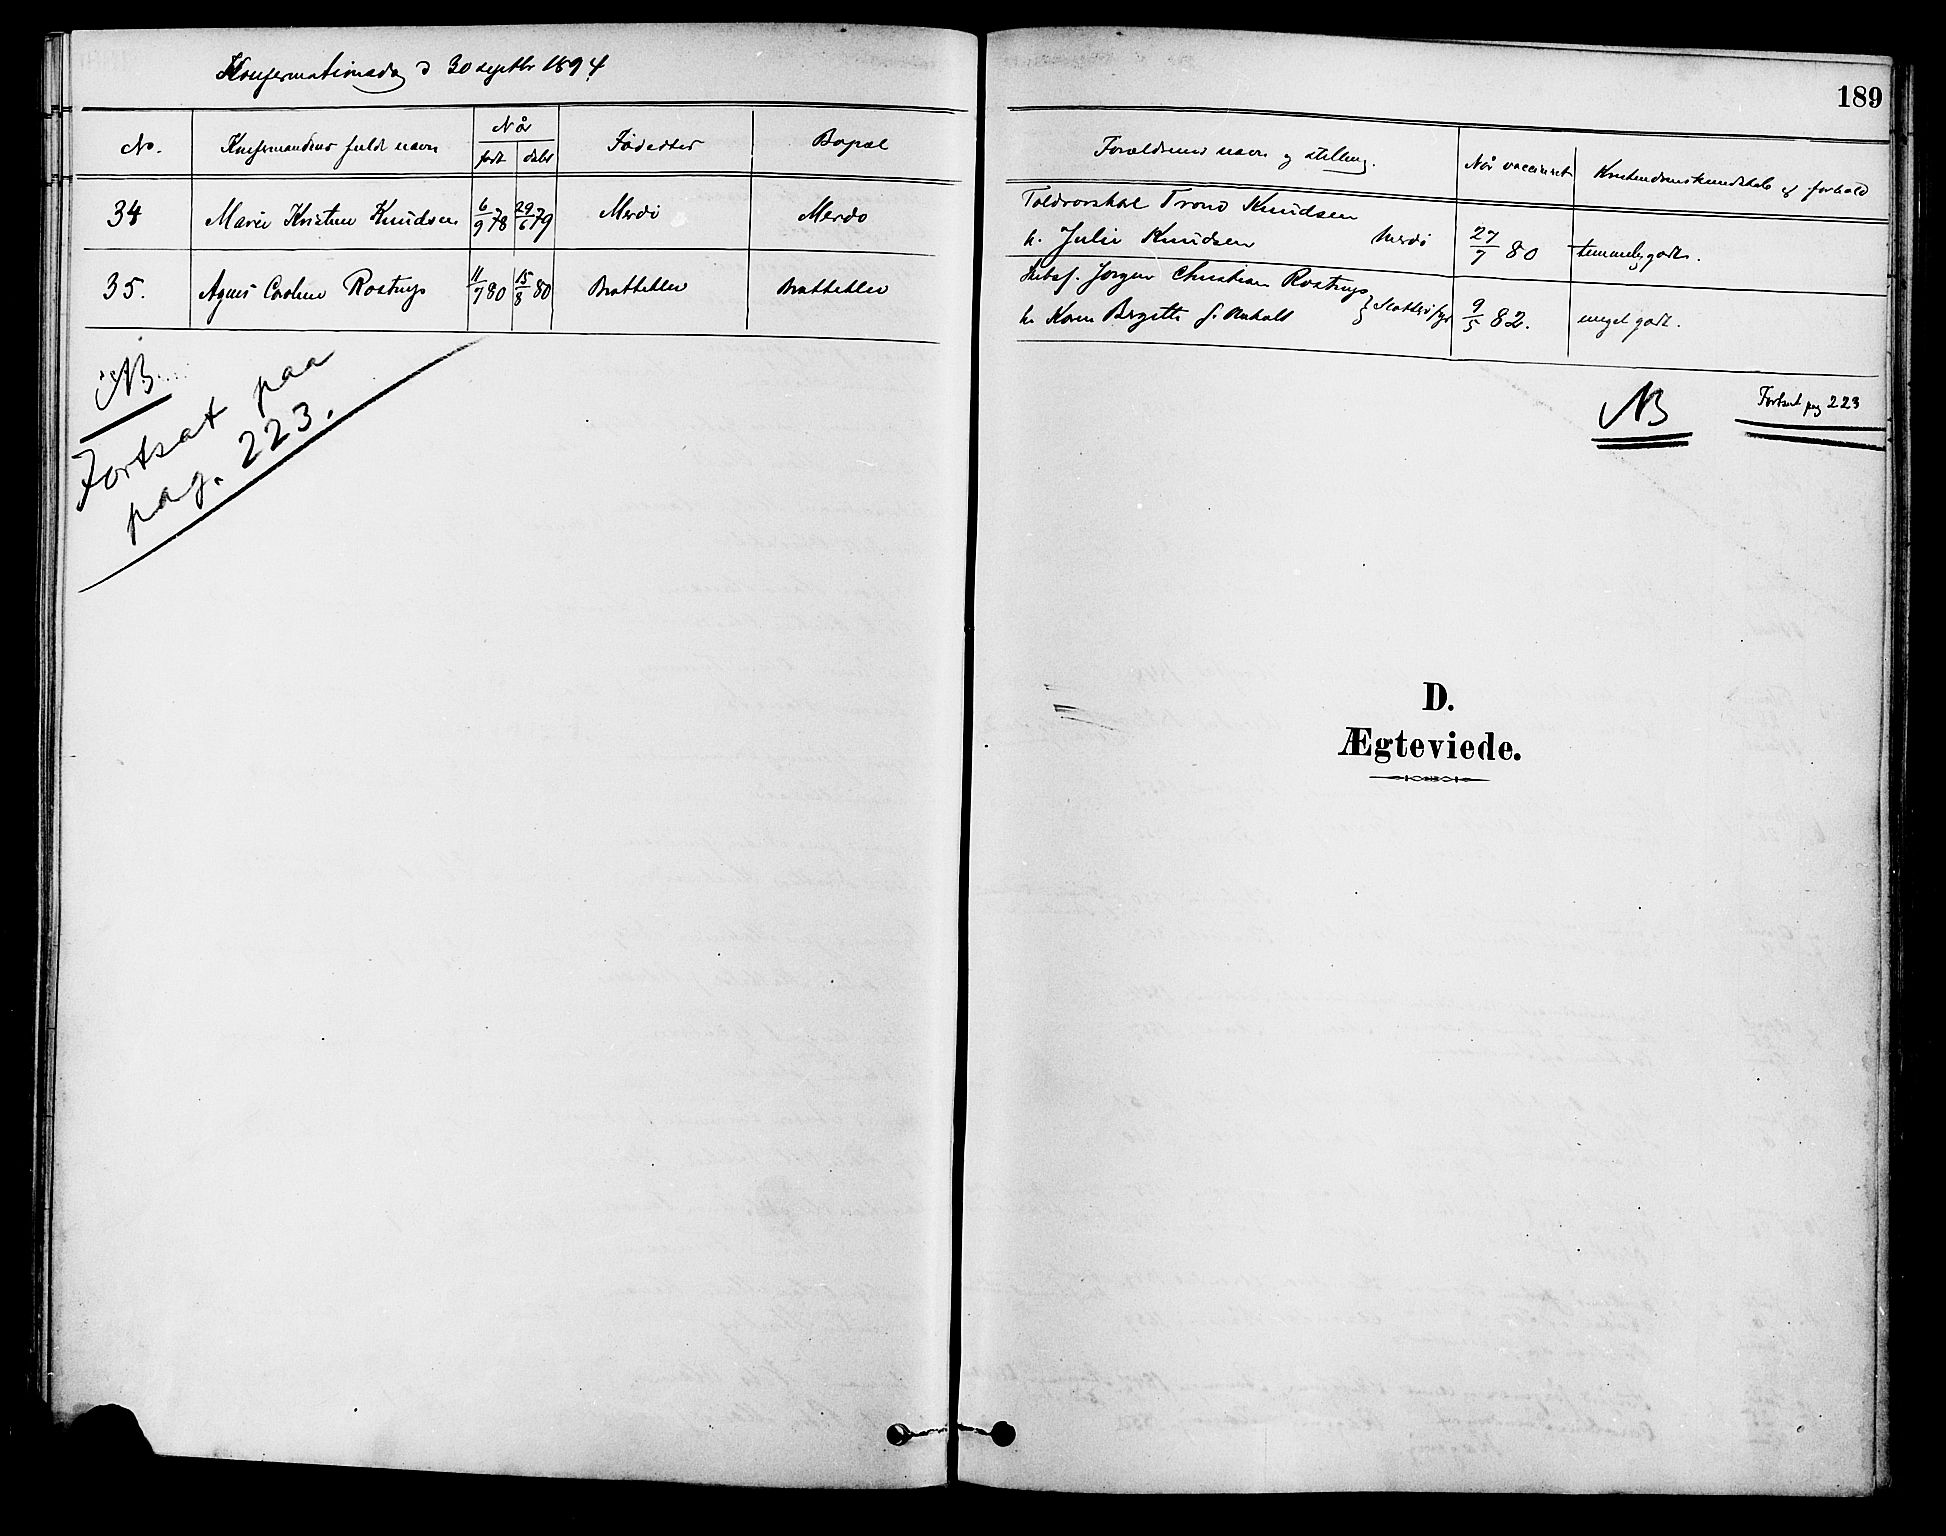 Konfirmationsdag d 30 septbr 1894
No. Konfirmandens fulde navn Når født døbt Fødested Bopæl
34 Marie Kristine Knudsen 6/9 78 29/6 79 Merdø Merdø
35. Agnes Caroline Rostrup 11/7 80 15/8 80 Brattekler Brattekler
NB
Fortsat paa
pag. 223.
189
Forældrenes navn og stilling. Når vaccineret Kristendomskundskab og forhold
Toldrorskarl Trond Knudsen
h. Julie Knudsen Merdø 27/7 80 temmelig godt.
Jørgen Christian Rostrup
h. Karen Birgitte f. 9/5 82. meget godt.
NB Fortsat pag 223
D.
Ægteviede.